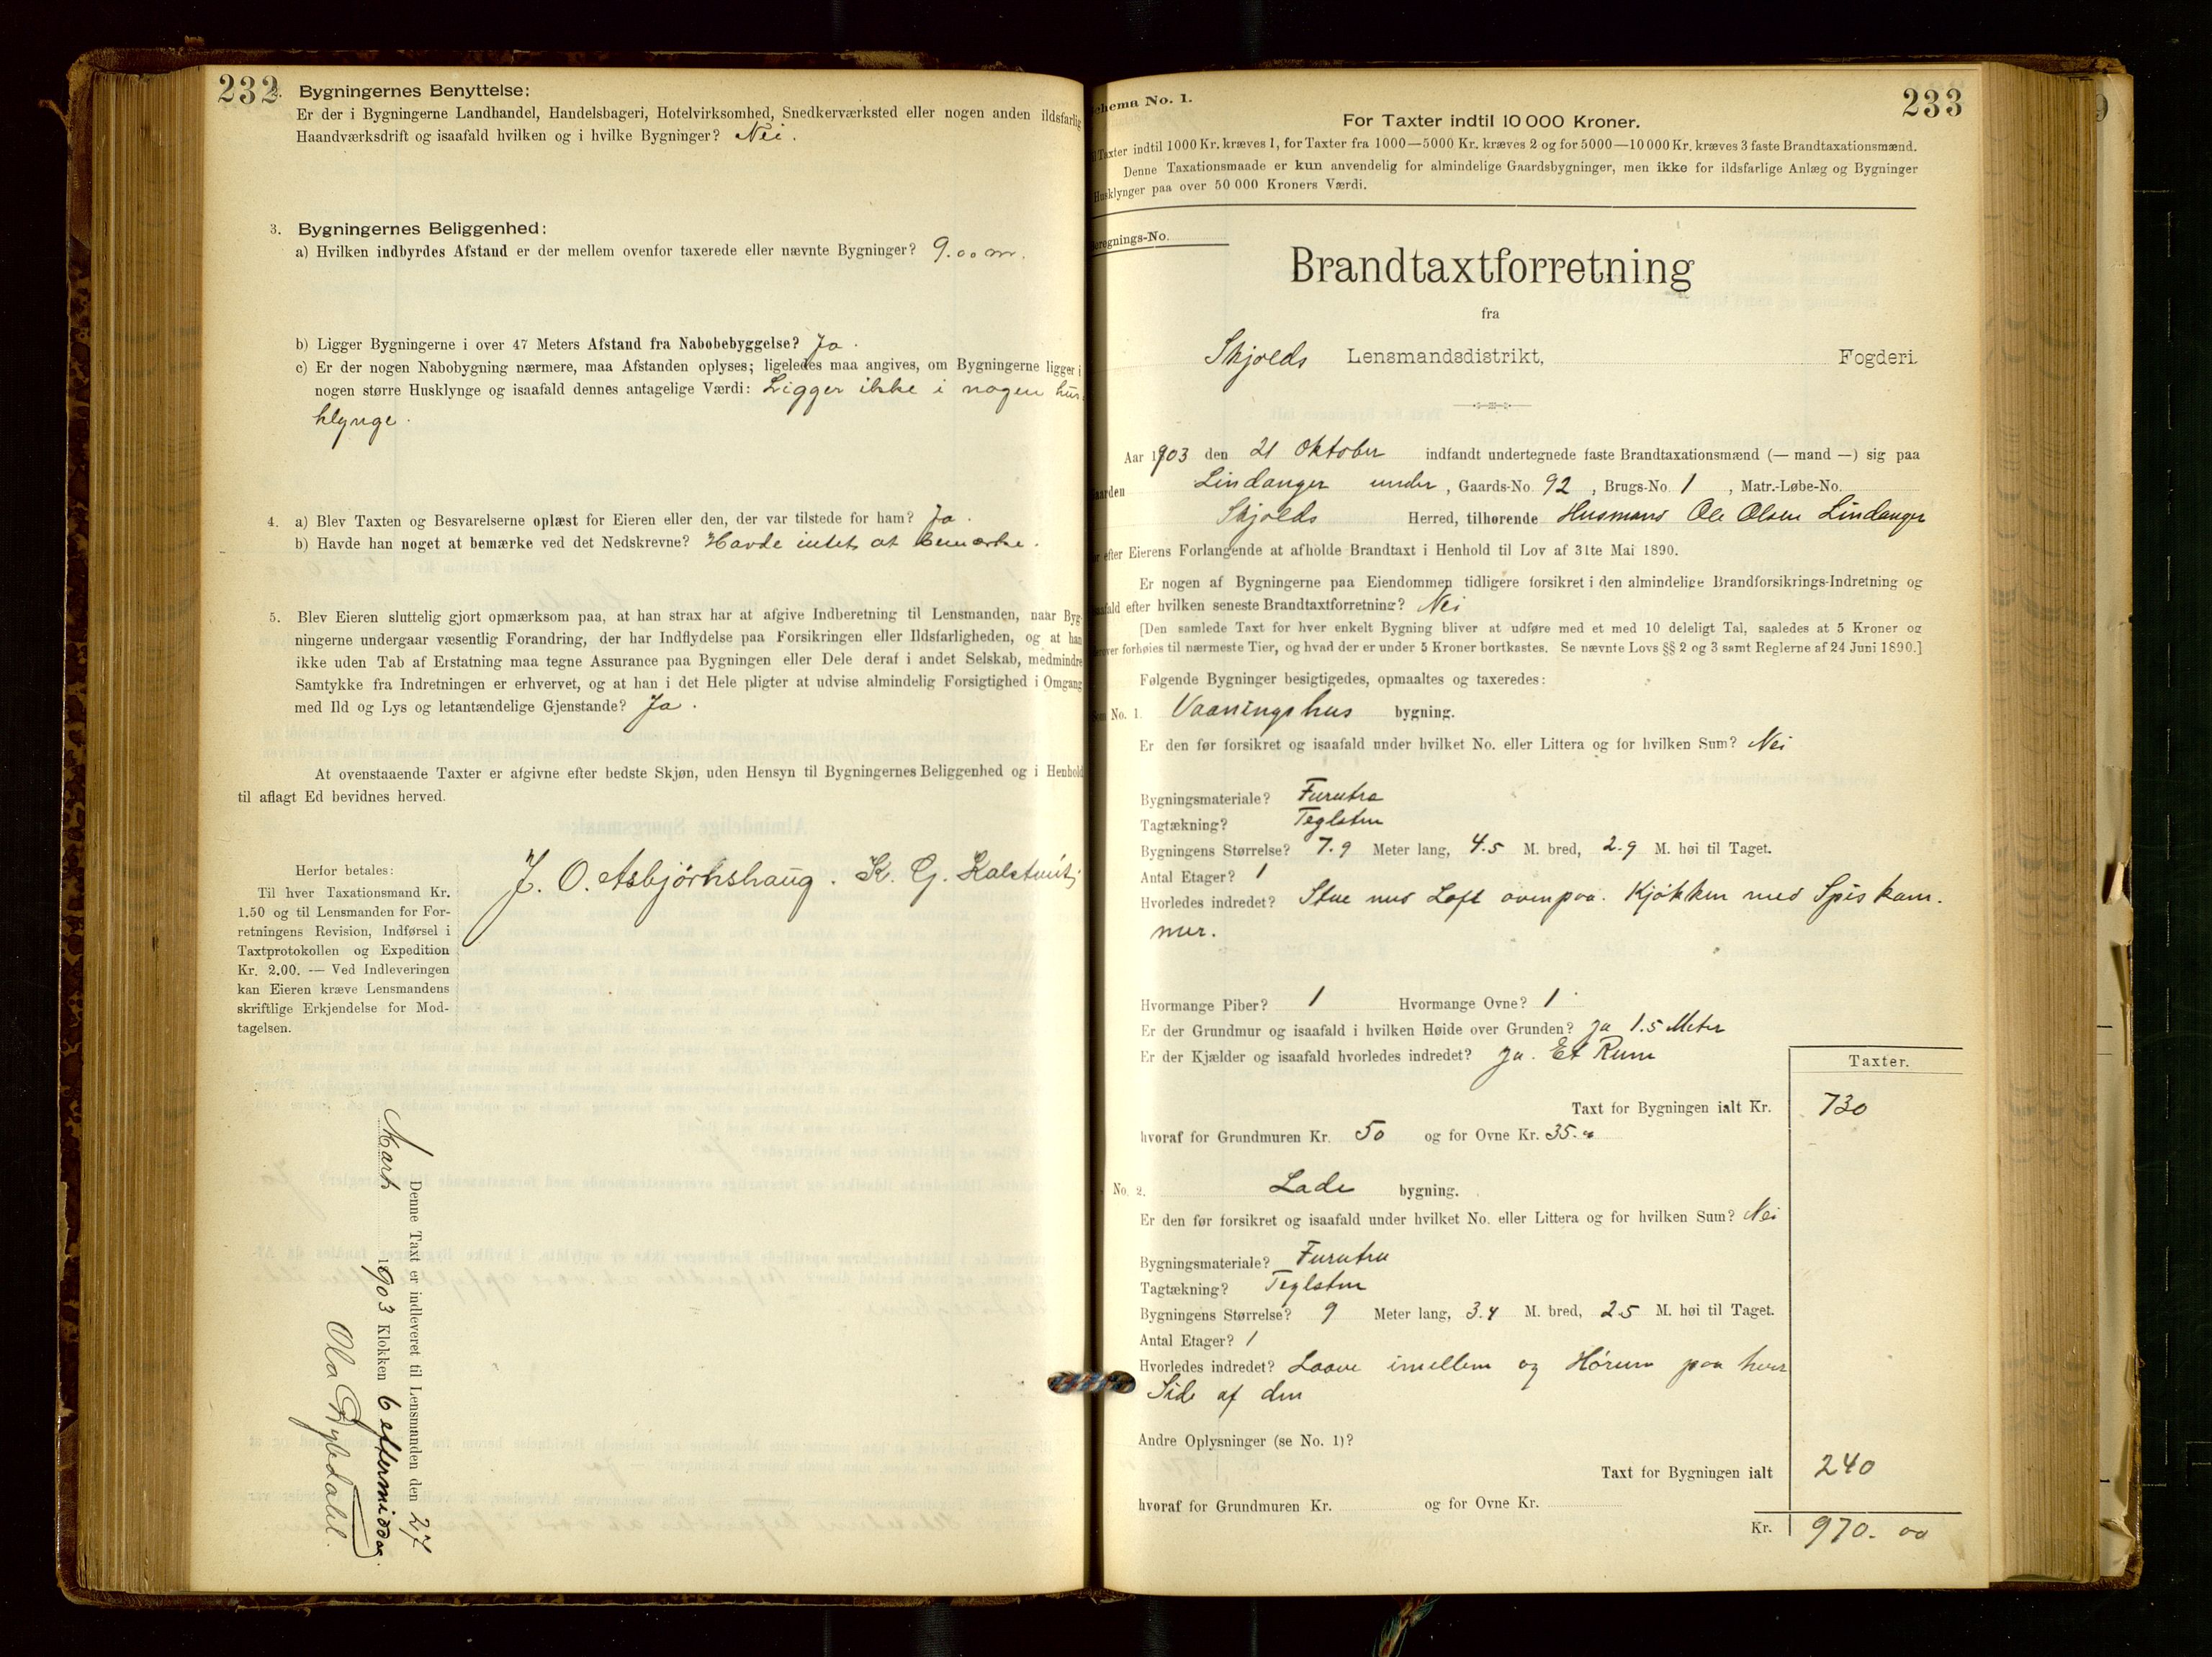 232
2. Bygningernes Benyttelse:
Er der i Bygningerne Landhandel, Handelsbageri, Hotelvirksomhed, Snedkerværksted eller nogen anden ildsfarlig
Haandværksdrift og isaafald hvilken og i hvilke Bygninger? Nei.
3. Bygningernes Beliggenhed:
a) Hvilken indbyrdes Afstand er der mellem ovenfor taxerede eller nævnte Bygninger? 9.00 m.
b) Ligger Bygningerne i over 47 Meters Afstand fra Nabobebyggelse? Ja.
c) Er der nogen Nabobygning nærmere, maa Afstanden oplyses; ligeledes maa angives, om Bygningerne ligger i
nogen større Husklynge og isaafald dennes antagelige Værdi: Ligger ikke i nogen hus
klynge.
4. a) Blev Taxten og Besvarelserne oplæst for Eieren eller den, der var tilstede for ham? Ja.
b) Havde han noget at bemærke ved det Nedskrevne? Havde intet at bemærke.
5. Blev Eieren sluttelig gjort opmærksom paa, at han strax har at afgive Indberetning til Lensmanden, naar Byg-
ningerne undergaar væsentlig Forandring, der har Indflydelse paa Forsikringen eller Ildsfarligheden, og at han
ikke uden Tab af Erstatning maa tegne Assurance paa Bygningen eller Dele deraf i andet Selskab, medmindre
Samtykke fra Indretningen er erhvervet, og at han i det Hele pligter at udvise almindelig Forsigtighed i Omgang
med Ild og Lys og letantændelige Gjenstande? Ja.
At ovenstaaende Taxter er afgivne efter bedste Skjøn, uden Hensyn til Bygningernes Beliggenhed og i Henhold
til aflagt Ed bevidnes herved.
J. O. Asbjörnshaug. K. G.
Herfor betales:
Til hver Taxationsmand Kr.
1.50 og til Lensmanden for For-
retningens Revision, Indførsel i
Taxtprotokollen og Expedition
Kr. 2.00. — Ved Indleveringen
kan Eieren kræve Lensmandens
skriftlige Erkjendelse for Mod-
tagelsen.
Denne Taxt er indleveret til Lensmanden den 27
Marts 1903 Klokken 6 eftermiddag.
Ola
Schema No. 1.
233
For Taxter indtil 10 000 Kroner.
Til Taxter indtil 1000 Kr. kræves 1, for Taxter fra 1000—5000 Kr. kræves 2 og for 5000—10 000 Kr. kræves 3 faste Brandtaxationsmænd.
Denne Taxationsmaade er kun anvendelig for almindelige Gaardsbygninger, men ikke for ildsfarlige Anlæg og Bygninger
Husklynger paa over 50 000 Kroners Værdi.
Beregnings-No.
Brandtaxtforretning
fra
Skjolds Lensmandsdistrikt, Fogderi.
Aar 1903 den 21 Oktober indfandt undertegnede faste Brandtaxationsmænd (— mand —) sig paa
Gaarden Lindanger under, Gaards-No. 92, Brugs-No. 1, Matr.-Løbe-No.
Skjolds Herred, tilhørende Husmand Ole Olsen Lindanger
for efter Eierens Forlangende at afholde Brandtaxt i Henhold til Lov af 31te Mai 1890.
Er nogen af Bygningerne paa Eiendommen tidligere forsikret i den almindelige Brandforsikrings-Indretning og
isaafald efter hvilken seneste Brandtaxtforretning? Nei
[Den samlede Taxt for hver enkelt Bygning bliver at udføre med et med 10 deleligt Tal, saaledes at 5 Kroner og
derover forhøies til nærmeste Tier, og hvad der er under 5 Kroner bortkastes. Se nævnte Lovs §§ 2 og 3 samt Reglerne af 24 Juni 1890.]
Følgende Bygninger besigtigedes, opmaaltes og taxeredes:
Som No. 1. Vaaningshus bygning.
Er den før forsikret og isaafald under hvilket No. eller Littera og for hvilken Sum? Nei
Bygningsmateriale? Furutræ
Tagtækning? Teglsten
Bygningens Størrelse? 7.9 Meter lang, 4.5 M. bred, 2.9 M. høi til Taget.
Antal Etager? 1
Hvorledes indredet? Stue med Loft ovenpaa. Kjøkken med Spiskam-
mer.
Hvormange Piber? 1 Hvormange Ovne? 1
Er der Grundmur og isaafald i hvilken Høide over Grunden? Ja 1.5 Meter
Er der Kjælder og isaafald hvorledes indredet? Ja. Et Rum
Taxter.
Taxt for Bygningen ialt Kr. 730
hvoraf for Grundmuren Kr. 50 og for Ovne Kr. 35.
No. 2. Lade bygning.
Er den før forsikret og isaafald under hvilket No. eller Littera og for hvilken Sum? Nei
Bygningsmateriale? Furutræ
Tagtækning? Teglsten
Bygningens Størrelse? 9 Meter lang, 3.4 M. bred, 2.5 M. høi til Taget.
Antal Etager? 1
Hvorledes indredet? Laave imellem og Hørum paa hver
Side af den
Andre Oplysninger (se No. 1)?
Taxt for Bygningen ialt 240
hvoraf for Grundmuren Kr. og for Ovne Kr.
Kr. 970. 00